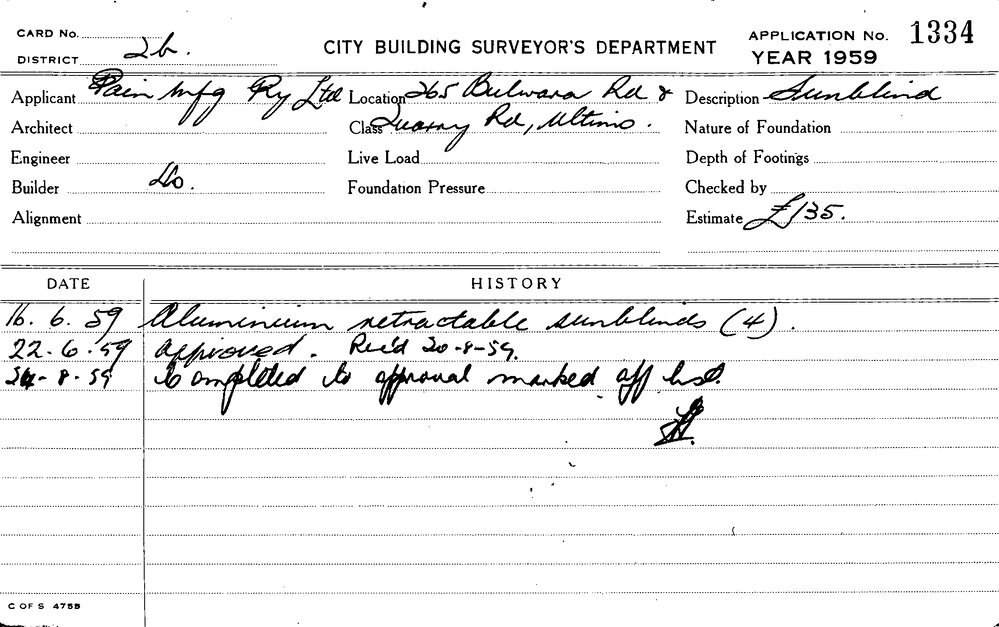 CARD No.
DISTRICT 2b.
CITY BUILDING SURVEYOR'S DEPARTMENT
APPLICATION No. 1334
YEAR 1959
Applicant Pain Mfg Pty Ltd Location 265 Bulwara Rd & Description Sunblind
Architect Class Quarry Rd, Ultimo. Nature of Foundation
Engineer Live Load Depth of Footings
Builder Do. Foundation Pressure Checked by
Alignment Estimate £135.
DATE HISTORY
16. 6. 59 Aluminium retractable sunblinds (4).
22. 6. 59 Approved. Rec'd 20-8-59.
24-8-59 Completed to approval marked off list.
C OF S 475B